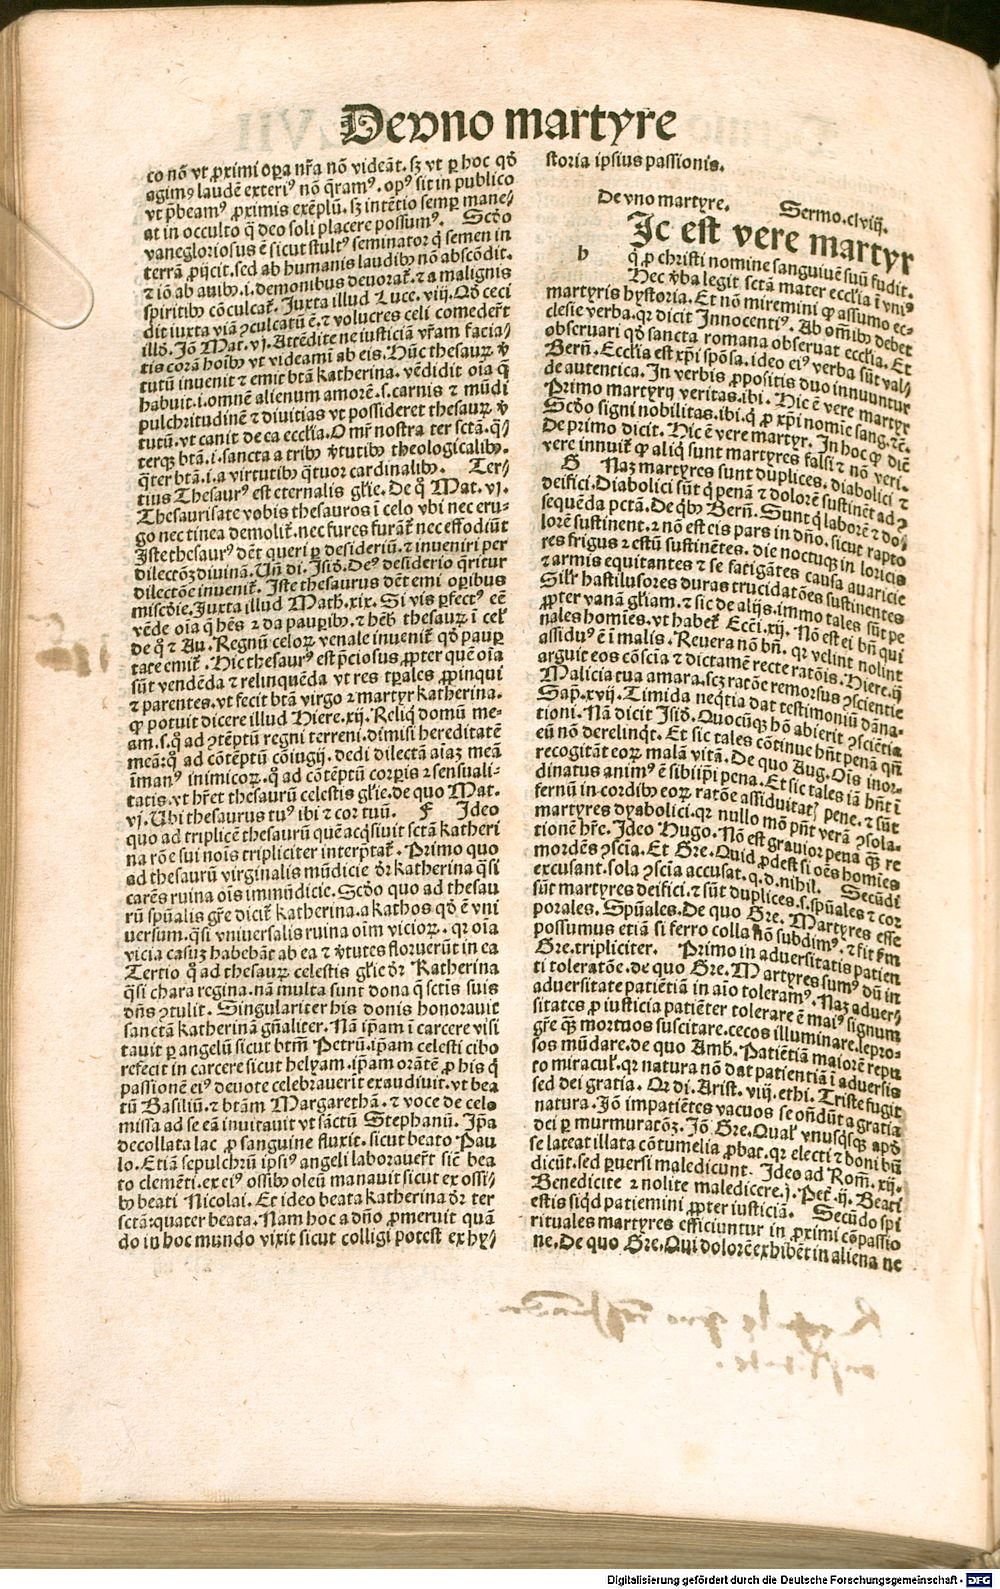 De vno martyre
co nō vt ꝓximi oꝑa nr̄a nō videāt. sꝫ vt ꝑ hoc qd̄
agimꝰ laudē exteriꝰ nō q̄ramꝰ. opꝰ sit in publico
vt p̄beamꝰ ꝓximis exēplū. sꝫ intētio semꝑ mane/
at in occulto q̄ deo soli placere possumꝰ. Scd̄o
vanegloriosus ē sicut stultꝰ seminator q̄ semen in
terrā ꝓijcit. sed ab humanis laudibꝰ nō abscōdit.
⁊ iō ab auibꝰ .i. demonibus deuorat̄. ⁊ a malignis
spiritibꝰ cōculcat̄. Juxta illud Luce. viij. Qd̄ ceci
dit iuxta viā ↄculcatū ē. ⁊ volucres celi comeder̄t
illd̄. Jō Mat. vj. Attēdite ne iusticiā vr̄am facia/
tis corā hoibꝰ vt videamī ab eis. Hūc thesauꝝ v̄
tutū inuenit ⁊ emit btā katherina. vēdidit oia q̄
habuit .i. omnē alienum amorē .s. carnis ⁊ mūdi
pulchritudinē ⁊ diuitias vt possideret thesauꝝ v̄
tutū. vt canit de ea eccl̄ia. O mr̄ nostra ter sctā. q̄/
terqꝫ btā .i. sancta a tribꝰ v̄tutibꝰ theologicalibꝰ.
q̄ter btā .i. a virtutibꝰ q̄tuor cardinalibꝰ. Ter/
tius Thesaurꝰ est eternalis gl̄ie. De qͦ Mat. vj.
Thesaurisate vobis thesauros ī celo vbi nec eru-
go nec tinea demolit̄. nec fures furāt̄ nec effodiūt
Jste thesaurꝰ dēt queri ꝑ desideriū. ⁊ inueniri per
dilectōꝫ diuinā. Uñ di. Jsid̄. Deꝰ desiderio q̄ritur
dilectōe inuenit̄. Jste thesaurus dēt emi opibus
miscd̄ie. Juxta illud Math̄. xix. Si vis ꝑfectꝰ eē
vēde oia q̄ hēs ⁊ da pauꝑibꝰ. ⁊ hēb̄ thesauꝝ ī cel̄
de qͦ ⁊ Au. Regnū celoꝝ venale inuenit̄ qd̄ pauꝑ
tate emit̄. Hic thesaurꝰ est p̄ciosus ꝓpter quē oia
sūt vendēda ⁊ relinquēda vt res tꝑales ꝓpinqui
⁊ parentes. vt fecit btā virgo ⁊ martyr katherina.
ꝙ potuit dicere illud Hiere. xij. Reliq̄ domū me-
am .s. qͦ ad ↄtēptū regni terreni. dimisi hereditatē
meā: qͦ ad cōtēptū cōiugij. dedi dilectā aīaꝫ meā
ī manꝰ inimicoꝝ. qͦ ad cōtēptū corꝑis ⁊ sensuali-
tatis. vt hr̄et thesaurū celestis gl̄ie. de quo Mat.
vj. Ubi thesaurus tuꝰ ibi ⁊ cor tuū. F Jdeo
quo ad triplicē thesaurū quē acq̄siuit sctā katheri
na rōe sui nois tripliciter interp̄tat̄. Primo quo
ad thesaurū virginalis mūdicie dr̄ katherina q̄si
carēs ruina oīs immūdicie. Scd̄o quo ad thesau
rū spūalis gr̄e dicit̄ katherina. a kathos qd̄ ē vni
uersum. q̄si vniuersalis ruina oim vicioꝝ. qꝛ oia
vicia casuꝫ habebāt ab ea ⁊ v̄tutes floruer̄t in ea
Tertio qͦ ad thesauꝝ celestis gl̄ie dr̄ Katherina
q̄si chara regina. nā multa sunt dona q̄ sctis suis
dn̄s ↄtulit. Singulariter his donis honorauit
sanctā katherinā gn̄aliter. Nā ip̄am ī carcere visi
tauit ꝑ angelū sicut btm̄ Petrū. ip̄am celesti cibo
refecit in carcere sicut helyam. ip̄am orātē ꝓ his q̄
passionē eiꝰ deuote celebrauerit exaudiuit. vt bea
tū Basiliū. ⁊ btām Margarethā. ⁊ voce de celo
missa ad se eā inuitauit vt sāctū Stephanū. Jp̄a
decollata lac ꝓ sanguine fluxit. sicut beato Pau
lo. Etiā sepulchrū ipsiꝰ angeli laborauer̄t sic̄ bea
to clemēti. ex eiꝰ ossibꝰ oleū manauit sicut ex ossi/
bꝰ beati Nicolai. Et ideo beata katherina dr̄ ter
sctā: quater beata. Nam hoc a dn̄o ꝓmeruit quā
do in hoc mundo vixit sicut colligi potest ex hy/
storia ipsius passionis.
De vno martyre. Sermo. clviij.
h Jc est vere martyr
q̄ ꝓ christi nomine sanguiuē suū fudit.
Hec v̄ba legit sctā mater eccl̄ia ī vniꝰ
martyris hystoria. Et nō miremini ꝙ assumo ec-
clesie verba. qꝛ dicit Jnnocentiꝰ. Ab om̄ibꝰ debet
obseruari qd̄ sancta romana obseruat eccl̄ia. Et
Bern̄. Eccl̄ia est xp̄i spōsa. ideo eiꝰ verba sūt val/
de autentica. In verbis ꝓpositis duo innuuntur
Primo martyrij veritas. ibi. Hic ē vere martyr
Scd̄o signi nobilitas. ibi. q̄ ꝓ xp̄i nomīe sang. ⁊c̄.
De primo dicit. Hic ē vere martyr. In hoc ꝙ dic̄
vere innuit̄ ꝙ aliq̄ sunt martyres falsi ⁊ nō veri.
G Naꝫ martyres sunt duplices. diabolici ⁊
deifici. Diabolici sūt q̄ penā ⁊ dolorē sustinēt ad ↄ
sequēda pctā. De qͥbꝰ Bern̄. Sunt q̄ laborē ⁊ do/
lorē sustinent. ⁊ nō est eis pars in dn̄o. sicut rapto
res frigus ⁊ estū sustinētes. die noctuqꝫ in loricis
⁊ armis equitantes ⁊ se fatigātes causa auaricie
Sil̄r hastilusores duras trucidatōes sustinentes
ꝓpter vanā gl̄iam. ⁊ sic de alijs. immo tales sūt pe
nales homīes. vt habet̄ Ecc̄i. xij. Nō est ei bn̄ qui
assiduꝰ ē ī malis. Reuera nō bn̄. qꝛ velint nolint
arguit eos cōscīa ⁊ dictamē recte ratōis. Hiere. ij
Malicia tua amara. scꝫ ratōe remorsus ↄscientie
Sap̄. xvij. Timida neq̄tia dat testimoniū dāna-
tioni. Nā dicit Jsid̄. Quocūqꝫ hō abierit ↄsciētia
eū nō derelinqͥt. Et sic tales cōtinue hn̄t penā qn̄
recogitāt eoꝝ malā vitā. De quo Aug. Oīs inor-
dinatus animꝰ ē sibiip̄i pena. Et sic tales iā hn̄t ī
fernū in cordibꝰ eoꝝ ratōe assiduitatꝭ pene. ⁊ sūt
martyres dyabolici. qꝛ nullo mō pn̄t verā ↄsola-
tionē hr̄e. Jdeo Hugo. Nō est grauior pena q̄ꝫ re
mordēs ↄscīa. Et Gre. Quid ꝓdest si oēs homīes
excusant. sola ↄscīa accusat. q. d. nihil. Secūdi
sūt martyres deifici. ⁊ sūt duplices .s. spūales ⁊ cor
porales. Spūales. De quo Gre. Martyres esse
possumus etiā si ferro colla nō subdimꝰ. ⁊ fit km̄
Gre. tripliciter. Primo in aduersitatis patien
ti toleratōe. de quo Gre. Martyres sumꝰ dū in
aduersitate patiētiā in aīo toleramꝰ. Naꝫ aduer/
sitates ꝓ iusticia patiēter tolerare ē maiꝰ signum
gr̄e q̄ꝫ mortuos suscitare. cecos illuminare. lepro-
sos mūdare. de quo Amb̄. Patiētiā maiorē repu
to miracul̄. qꝛ natura nō dat patientiā ī aduersis
sed dei gratia. Qꝛ di. Arist. viij. ethi. Triste fugit
natura. Jō impatiētes vacuos se on̄dūt a gratia
dei ꝑ murmuratōꝫ. Jō Gre. Qual̄ vnusqͥsqꝫ apd̄
se lateat illata cōtumelia ꝓbat. qꝛ electi ⁊ boni bn̄
dicūt. sed ꝑuersi maledicunt. Jdeo ad Rom̄. xij.
Benedicite ⁊ nolite maledicere. j. Pet̄. ij. Beati
estis siqͥd patiemini ꝓpter iusticiā. Secūdo spi
rituales martyres efficiuntur in ꝓximi cōpassio
ne. De quo Gre. Qui dolorē exhibēt in aliena ne
Digitalisierung gefördert durch die Deutsche Forschungsgemeinschaft - DFG